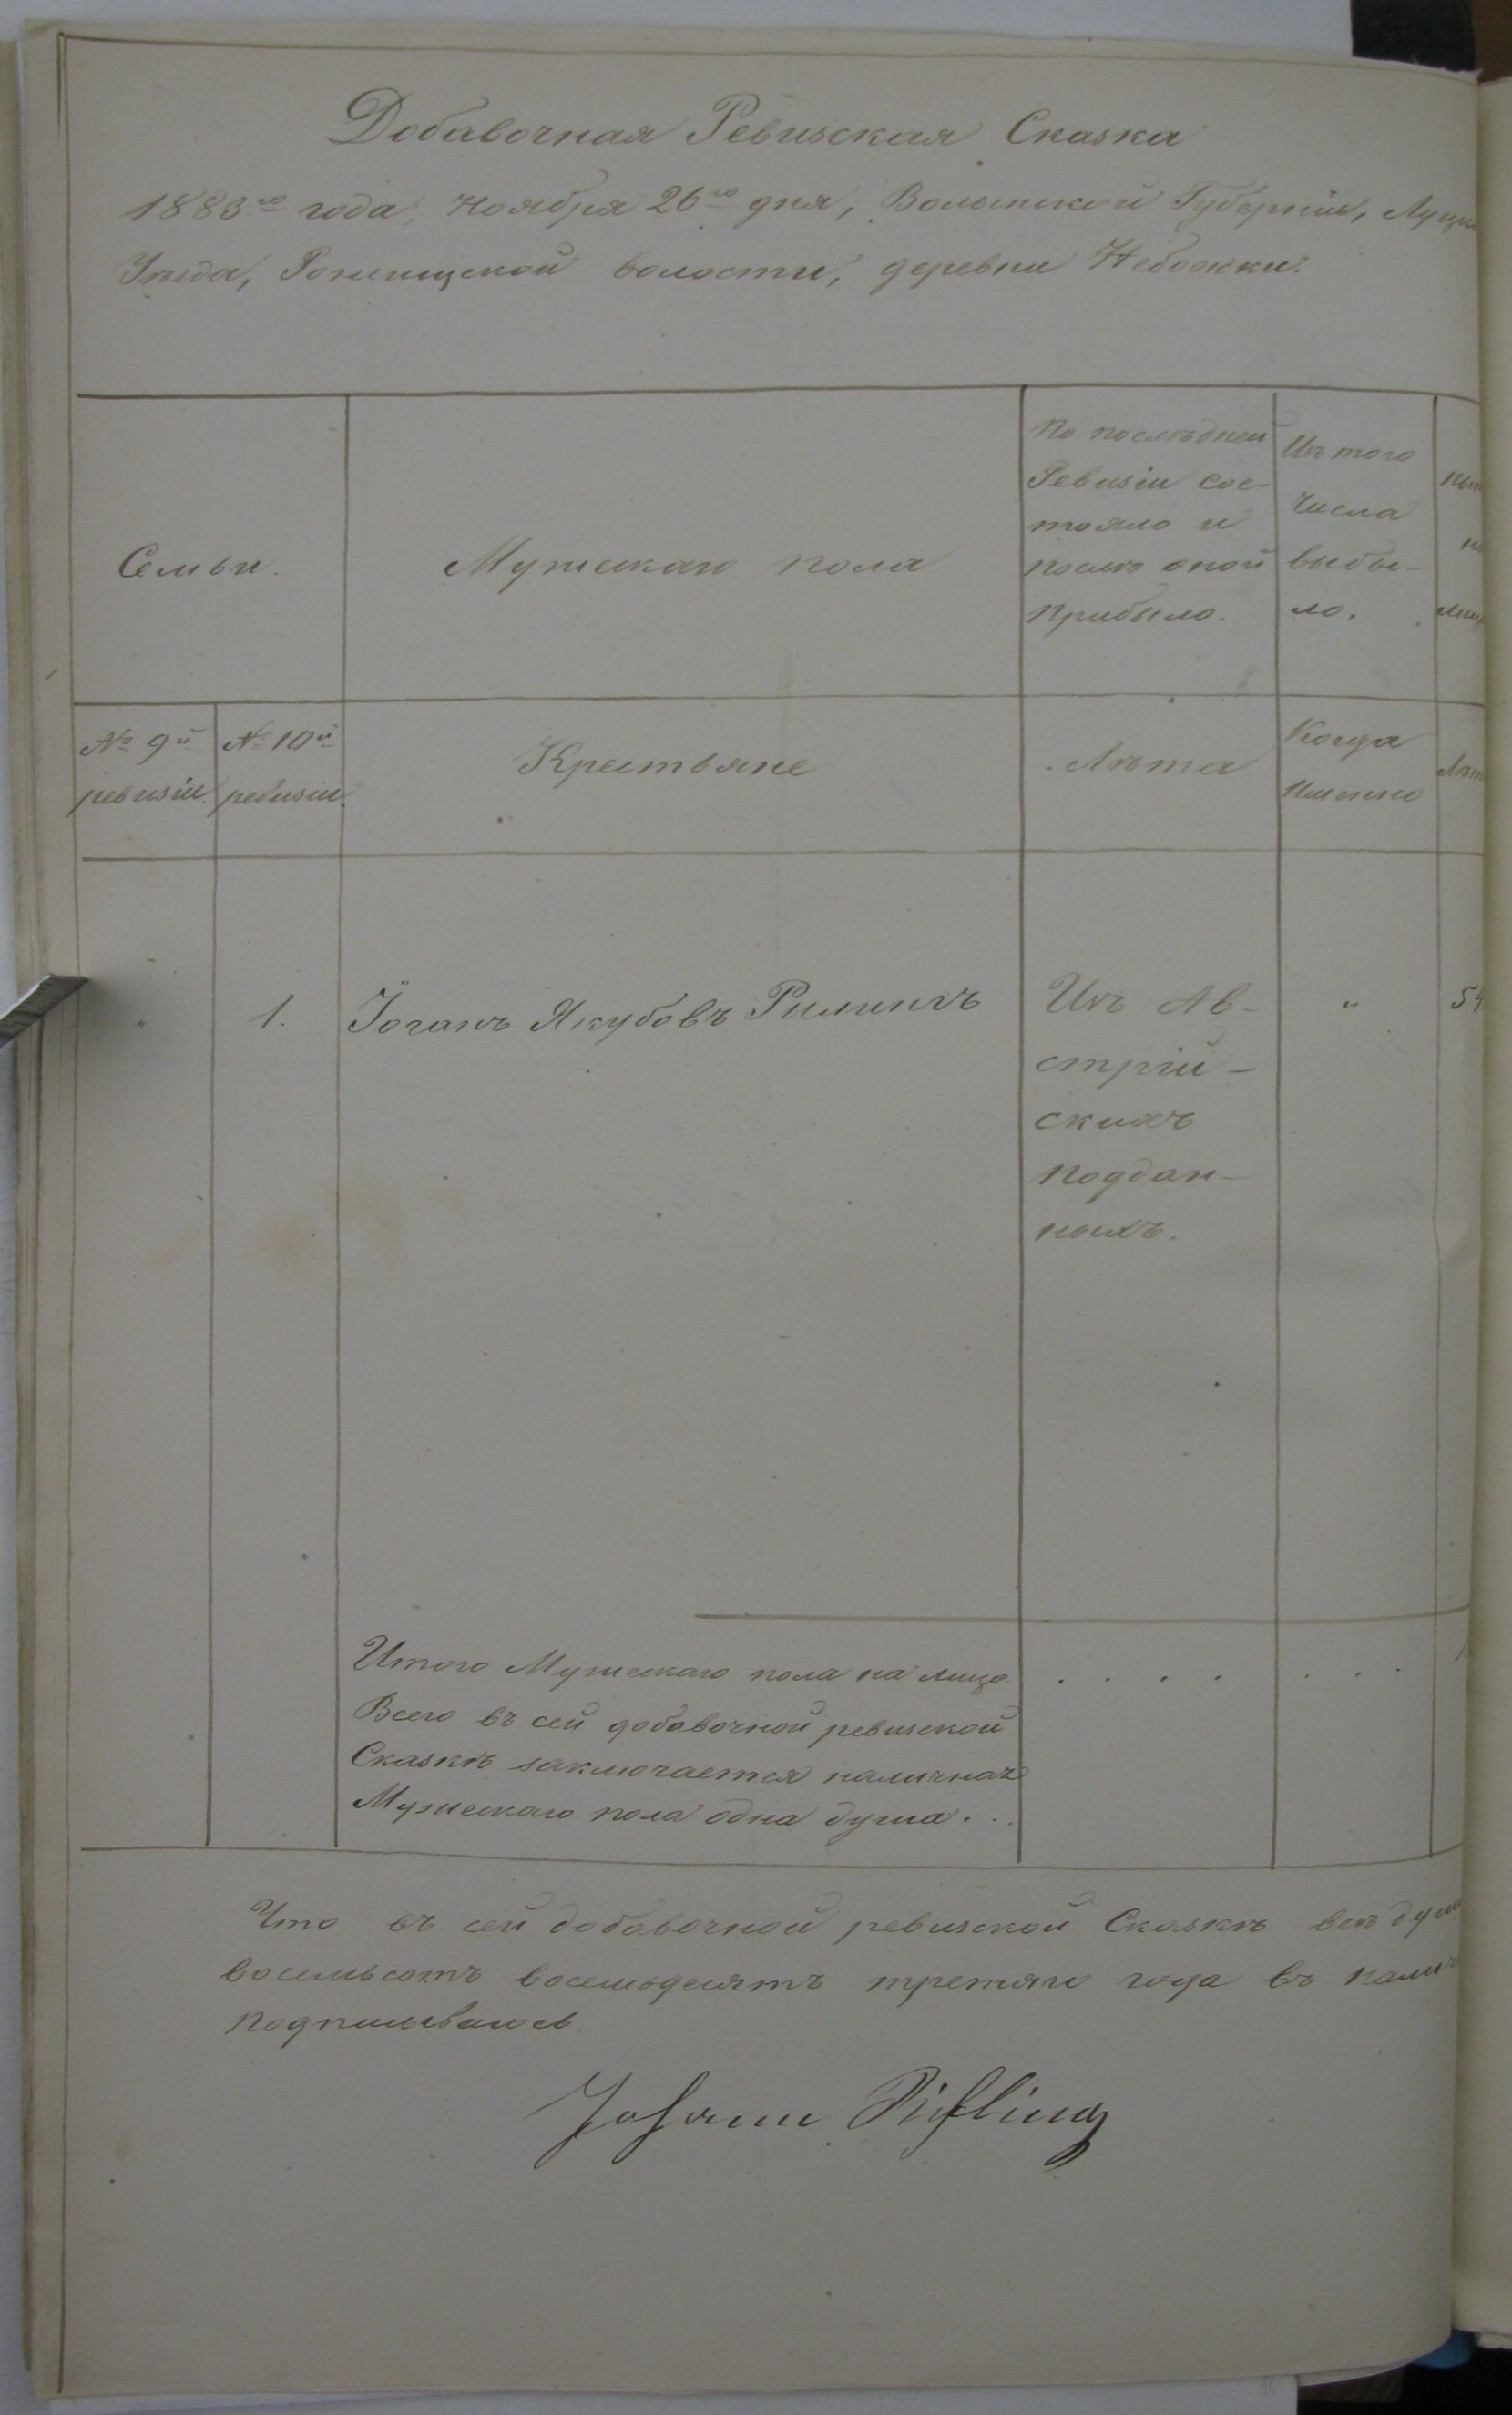 Добавочная Ревизская Сказка
1883го года, Ноября 26го дня, Волынской Губерніи, Луцк
Уѣзда, Рожищской волости, деревни Небожки.
Семьи.
Мужескаго пола
По послѣдней
Ревизіи сос-
тояло и
послѣ оной
прибыло.
Изъ того
числа
выбы-
ло.
№ 9й
ревизіи.
№ 10й
ревизіи.
Крестьяне
Лѣта
Когда
именно
Лѣт
"
1.
Іоганъ Якубовъ
Изъ Ав-
стрій-
скихъ
Поддан-
ныхъ.
"
54
Итого Мужескаго пола на лицо . . . . . . .
Всего въ сей добавочной ревизской
Сказкѣ заключается наличная
Мужескаго пола одна душа. . .
Что въ сей добавочной ревизской Сказкѣ всѣ душ
восемьсотъ восемьдесятъ третяго года въ налич
подписываюсь.
Johann